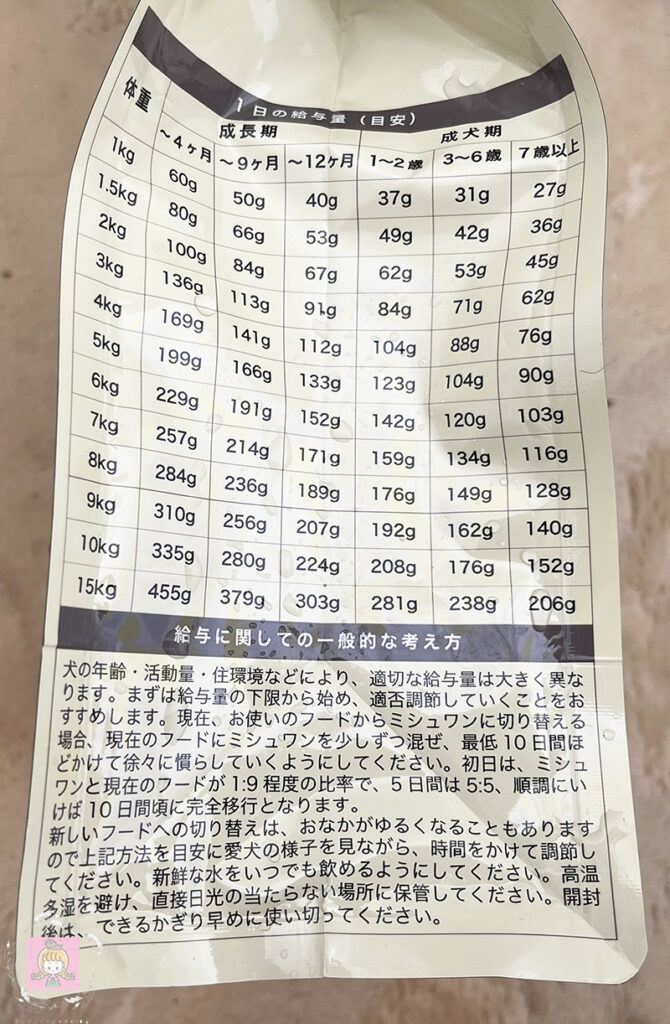 1日の給与量（目安）
体重 成長期 成犬期
～4ヶ月 ～9ヶ月 ～12ヶ月 1～2歳 3～6歳 7歳以上
1kg 60g 50g 40g 37g 31g 27g
1.5kg 80g 66g 53g 49g 42g 36g
2kg 100g 84g 67g 62g 53g 45g
3kg 136g 113g 91g 84g 71g 62g
4kg 169g 141g 112g 104g 88g 76g
5kg 199g 166g 133g 123g 104g 90g
6kg 229g 191g 152g 142g 120g 103g
7kg 257g 214g 171g 159g 134g 116g
8kg 284g 236g 189g 176g 149g 128g
9kg 310g 256g 207g 192g 162g 140g
10kg 335g 280g 224g 208g 176g 152g
15kg 455g 379g 303g 281g 238g 206g
給与に関しての一般的な考え方
犬の年齢・活動量・住環境などにより、適切な給与量は大きく異な
ります。まずは給与量の下限から始め、適否調節していくことをお
すすめします。現在、お使いのフードからミシュワンに切り替える
場合、現在のフードにミシュワンを少しずつ混ぜ、最低10日間ほ
どかけて徐々に慣らしていくようにしてください。初日は、ミシュ
ワンと現在のフードが1:9程度の比率で、5日間は5:5、順調にい
けば10日間頃に完全移行となります。
新しいフードへの切り替えは、おなかがゆるくなることもあります
ので上記方法を目安に愛犬の様子を見ながら、時間をかけて調節し
てください。新鮮な水をいつでも飲めるようにしてください。高温
多湿を避け、直接日光の当たらない場所に保管してください。開封
後は、できるかぎり早めに使い切ってください。